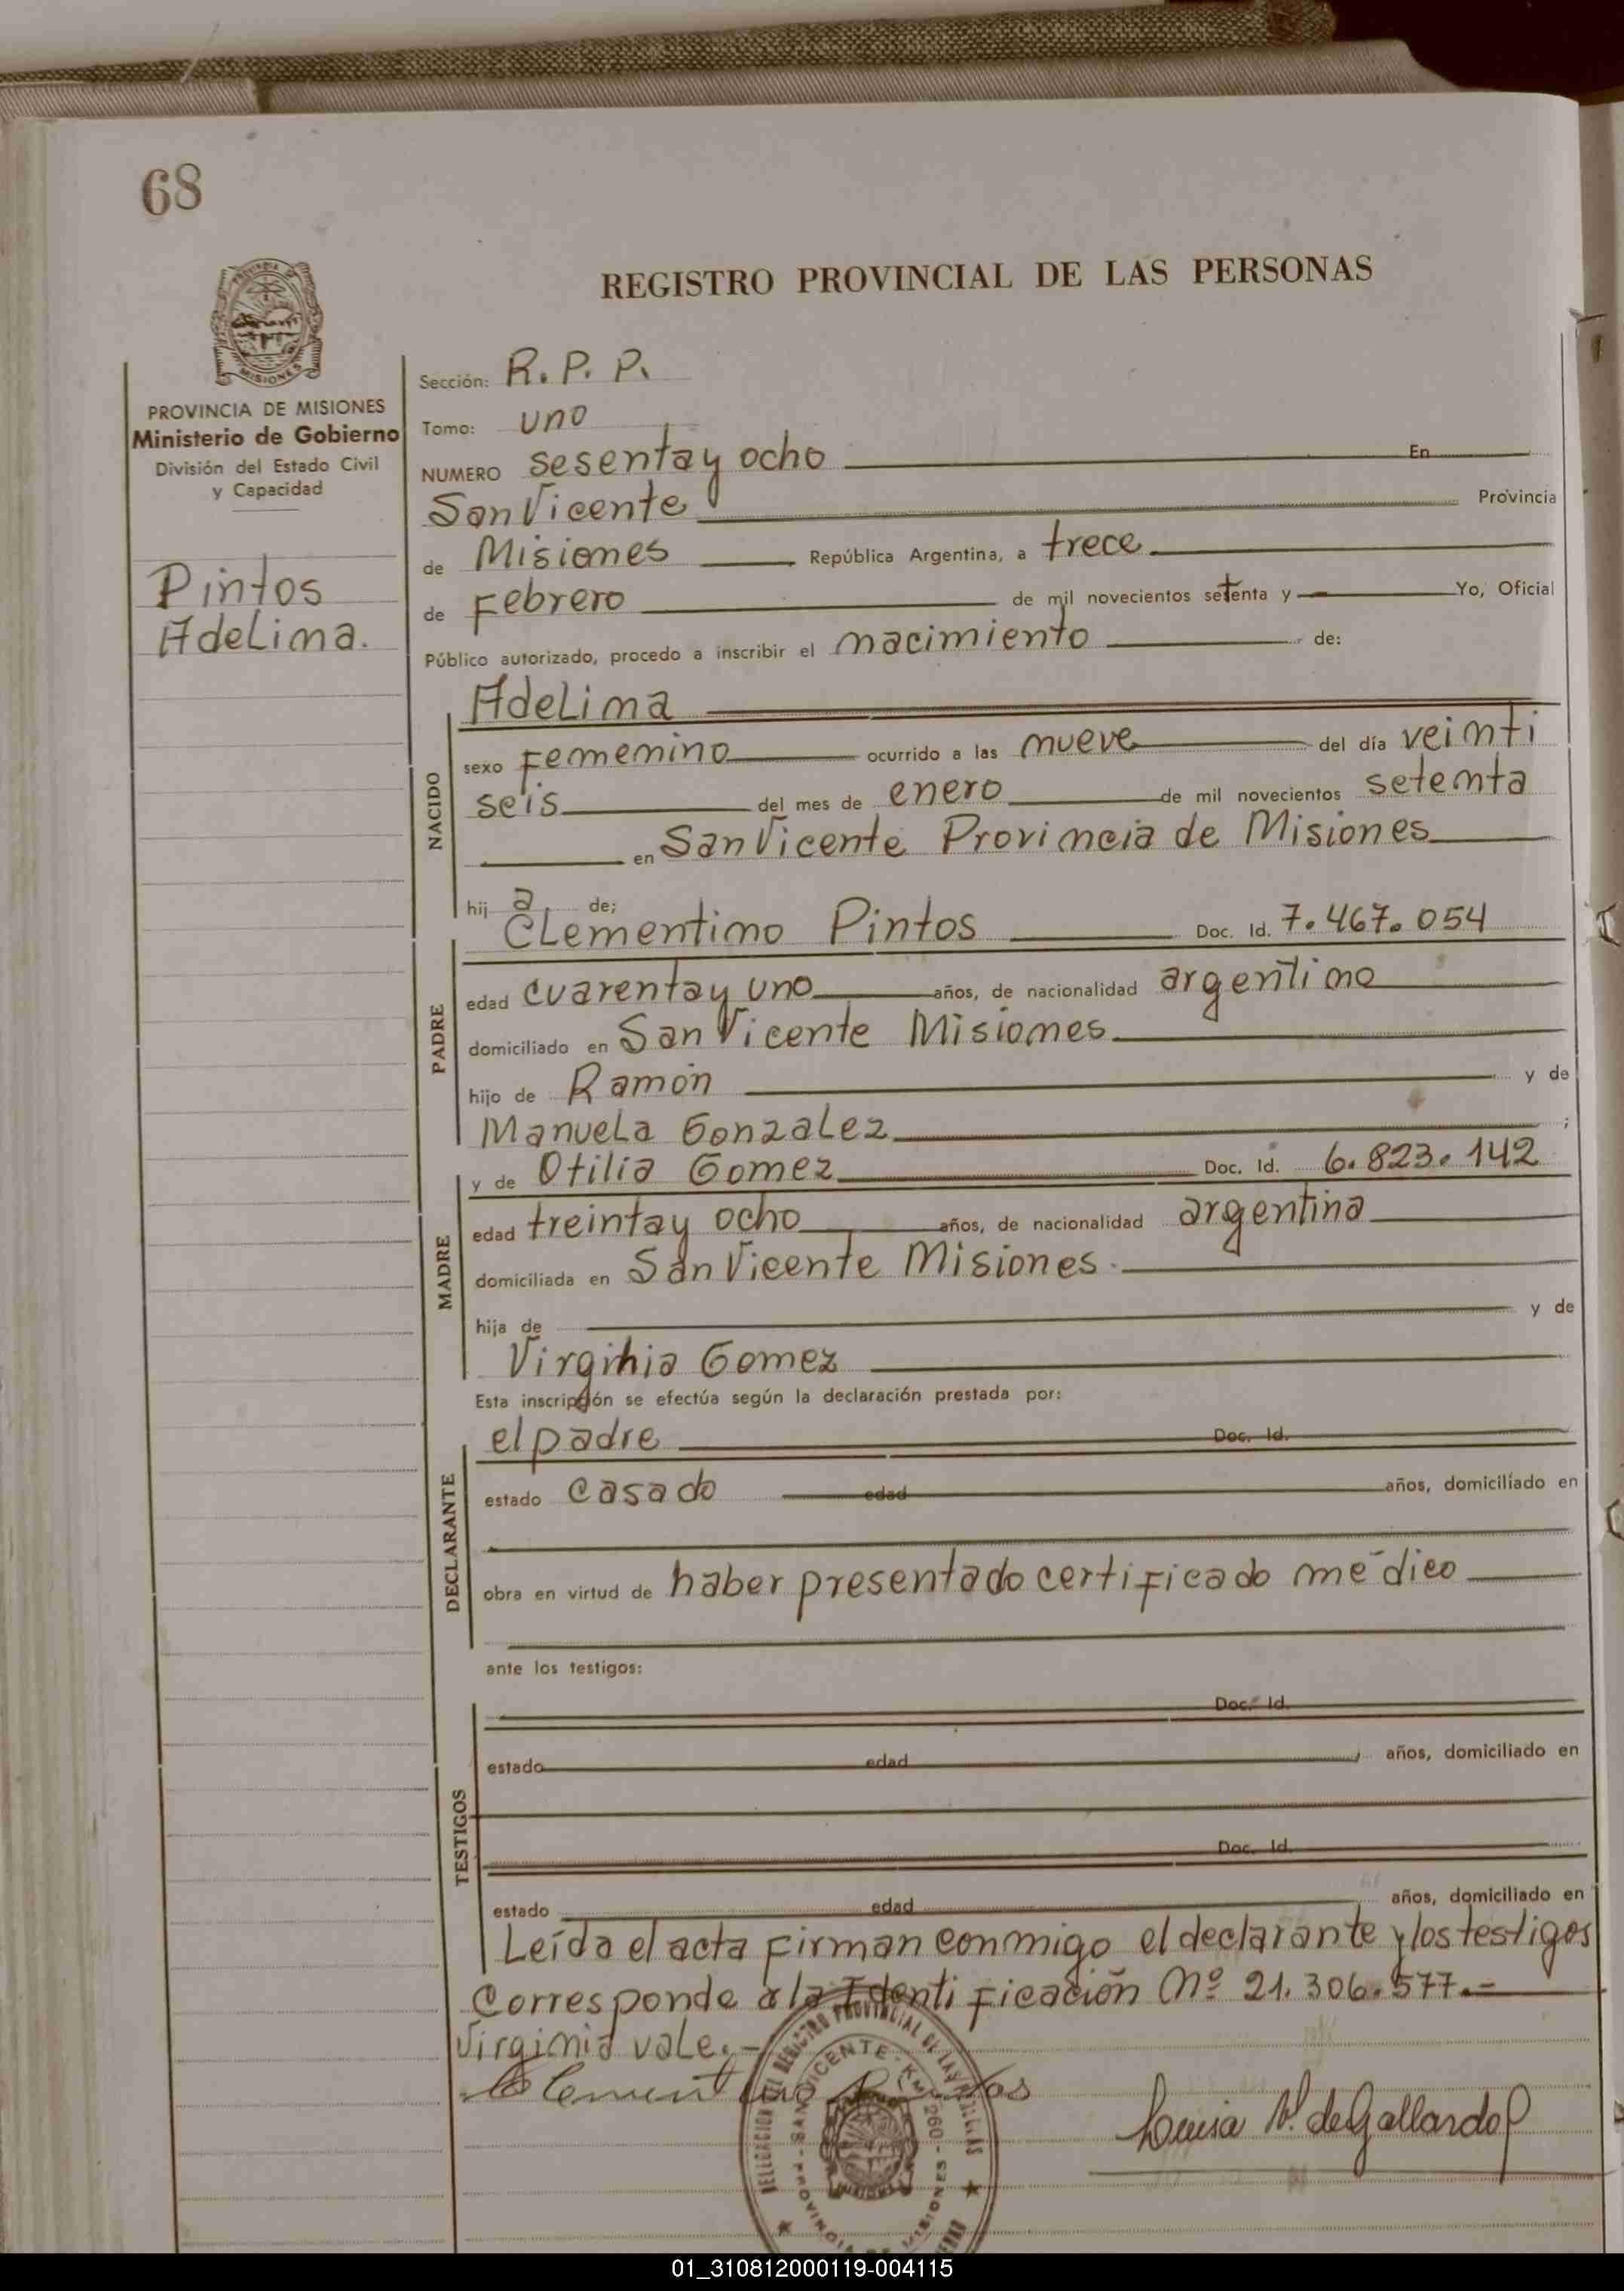 68
REGISTRO PROVINCIAL DE LAS PERSONAS
MISIONES
PROVINCIA DE MISIONES
Ministerio de Gobierno
División del Estado Civil
y Capacidad
Pintos
AdeLima.
Sección: R. P. P.
Tomo: uno
NUMERO sesenta y ocho En
San Vicente Provincia
de Misiones República Argentina, a trece
de Febrero de mil novecientos setenta y Yo, Oficial
Público autorizado, procedo a inscribir el nacimiento de:
NACIDO
AdeLima
sexo Femenino ocurrido a las nueve del día veinti
seis del mes de enero de mil novecientos setenta
en San Vicente Provincia de Misiones
hij a de;
PADRE
CLementino Pintos Doc. Id. 7.467.054
edad cuarenta y uno años, de nacionalidad argentino
domiciliado en San Vicente Misiones
hijo de Ramón y de
ManueLa GonzaLez ;
MADRE
y de Otilia Gomez Doc. Id. 6.823.142
edad treinta y ocho años, de nacionalidad argentina
domiciliada en San Vicente Misiones.
hija de y de
Virginia Gomez
Esta inscripción se efectúa según la declaración prestada por:
DECLARANTE
el padre Doc. Id.
estado casado edad años, domiciliado en
obra en virtud de haber presentado certificado médico
ante los testigos:
TESTIGOS
Doc. Id.
estado edad años, domiciliado en
Doc. Id.
estado edad años, domiciliado en
Leída el acta firman conmigo el declarante y los testigos
Corresponde a la Identificación Nº 21.306.577.-
Virginia vale.-
Clementino Pintos
Luisa V. de Gallardo
DELEGACION DEL REGISTRO PROVINCIAL DE LAS PERSONAS
SAN VICENTE - KM. 260 - PROVINCIA DE MISIONES
01_310812000119-004115